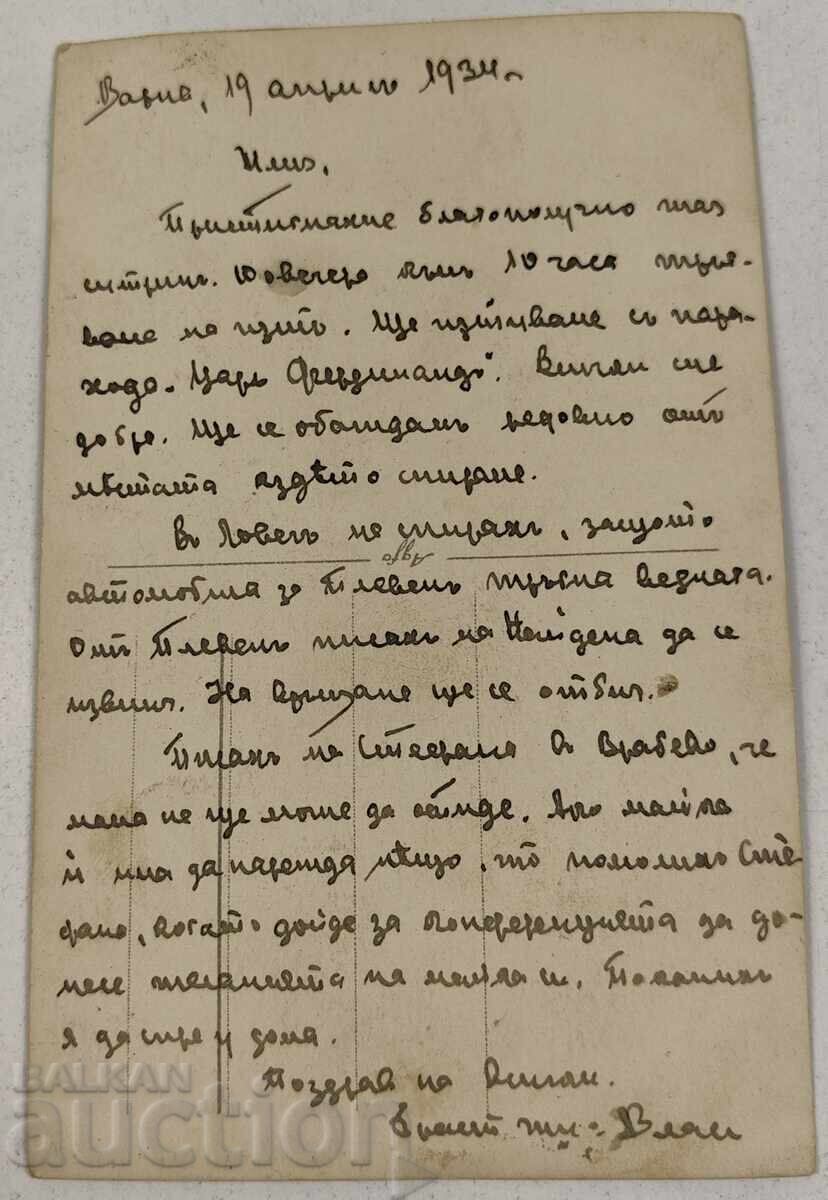 Варна, 19 априлъ 1934.
Илиэ,
Пристигнахме благополучно таз
сутринь. Довечера къмъ 10 часа тръг-
ваме на път. Ще пътуваме съ пара-
хода „Царь Фердинандъ". Всички сме
добре. Ще се обаждамъ редовно отъ
мѣстата кѫдѣто спираме.
Въ Ловечъ не спирахъ, защото
автомобила за Плевенъ тръгна веднага.
Отъ Плевенъ писахъ на Найдена да се
извиня. На връщане ще се отбия.
Писахъ на Стефана въ Врабево, че
мама не ще може да отиде. Ако майка
ѝ има да нарежда нѣщо, то помолихъ Сте-
фана, когато дойде за конференцията да до-
несе желанията на майка си. Поканихъ
я да спре у дома.
Поздрав на всички.
Братъ ти: Влан
Адре
BALKAN
auction